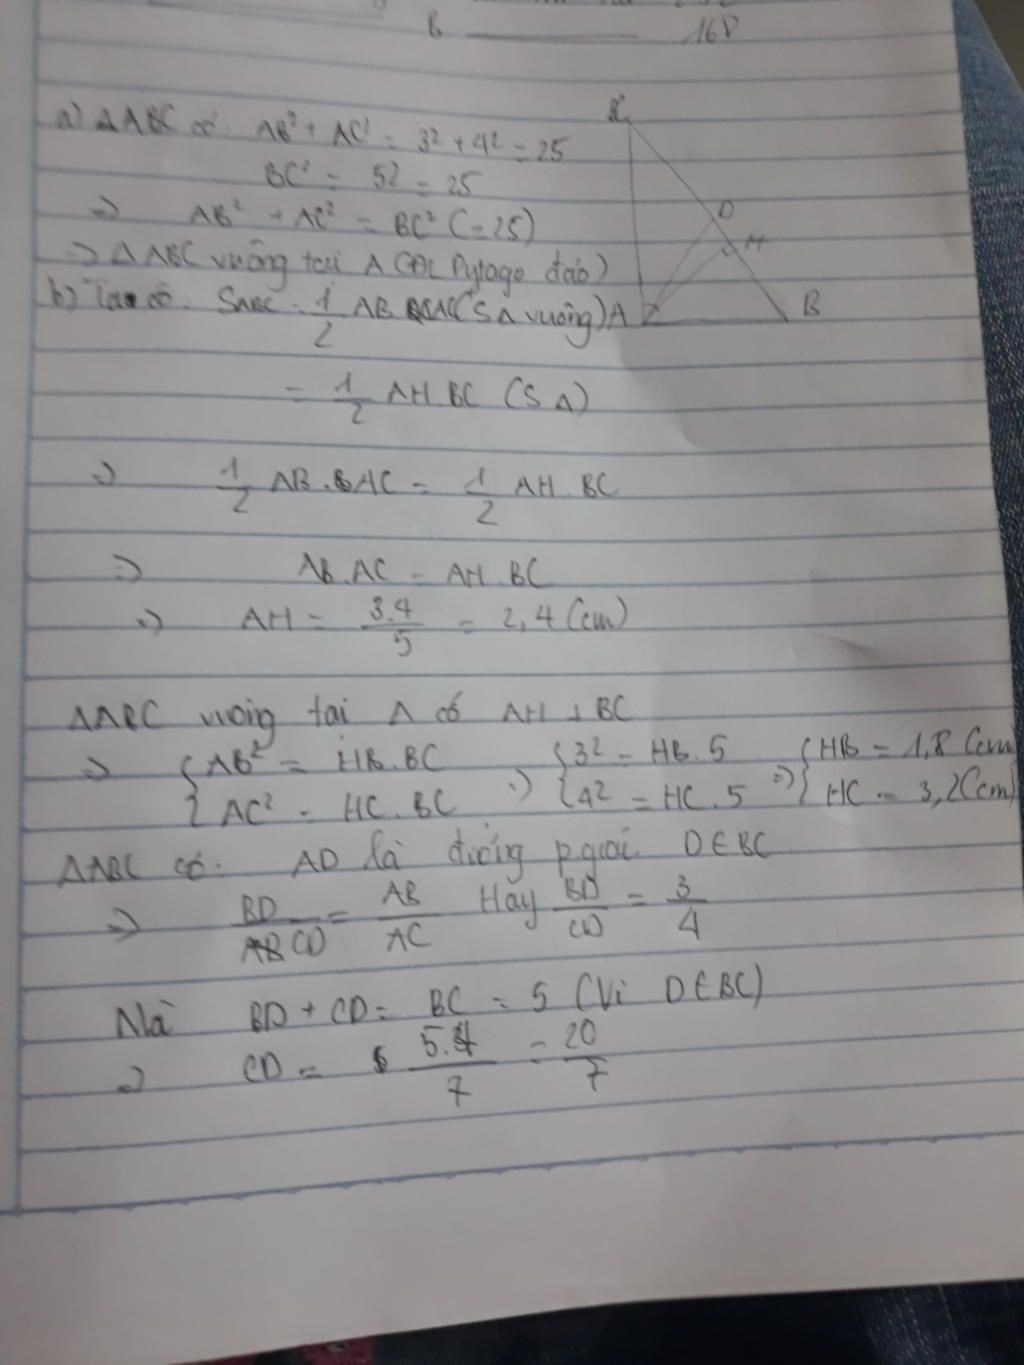 B 168
a) ΔABC có: AB² + AC² = 3² + 4² = 25
BC² = 5² = 25
=> AB² + AC² = BC² (=25)
=> ΔABC vuông tại A (ĐL Pytago đảo)
b) Ta có: SABC = 1/2 AB.AC (SΔ vuông)
= 1/2 AH.BC (SΔ)
=> 1/2 AB.AC = 1/2 AH.BC
=> AB.AC = AH.BC
=> AH = 3.4/5 = 2,4 (cm)
ΔABC vuông tại A có AH ⊥ BC
=> { AB² = HB.BC => { 3² = HB.5 => { HB = 1,8 (cm)
{ AC² = HC.BC { 4² = HC.5 { HC = 3,2 (cm)
ΔABC có: AD là đường p.giác D∈BC
=> BD/CD = AB/AC Hay BD/CD = 3/4
Mà BD + CD = BC = 5 (Vì D∈BC)
=> CD = 5.4/7 = 20/7
D
H
A
B